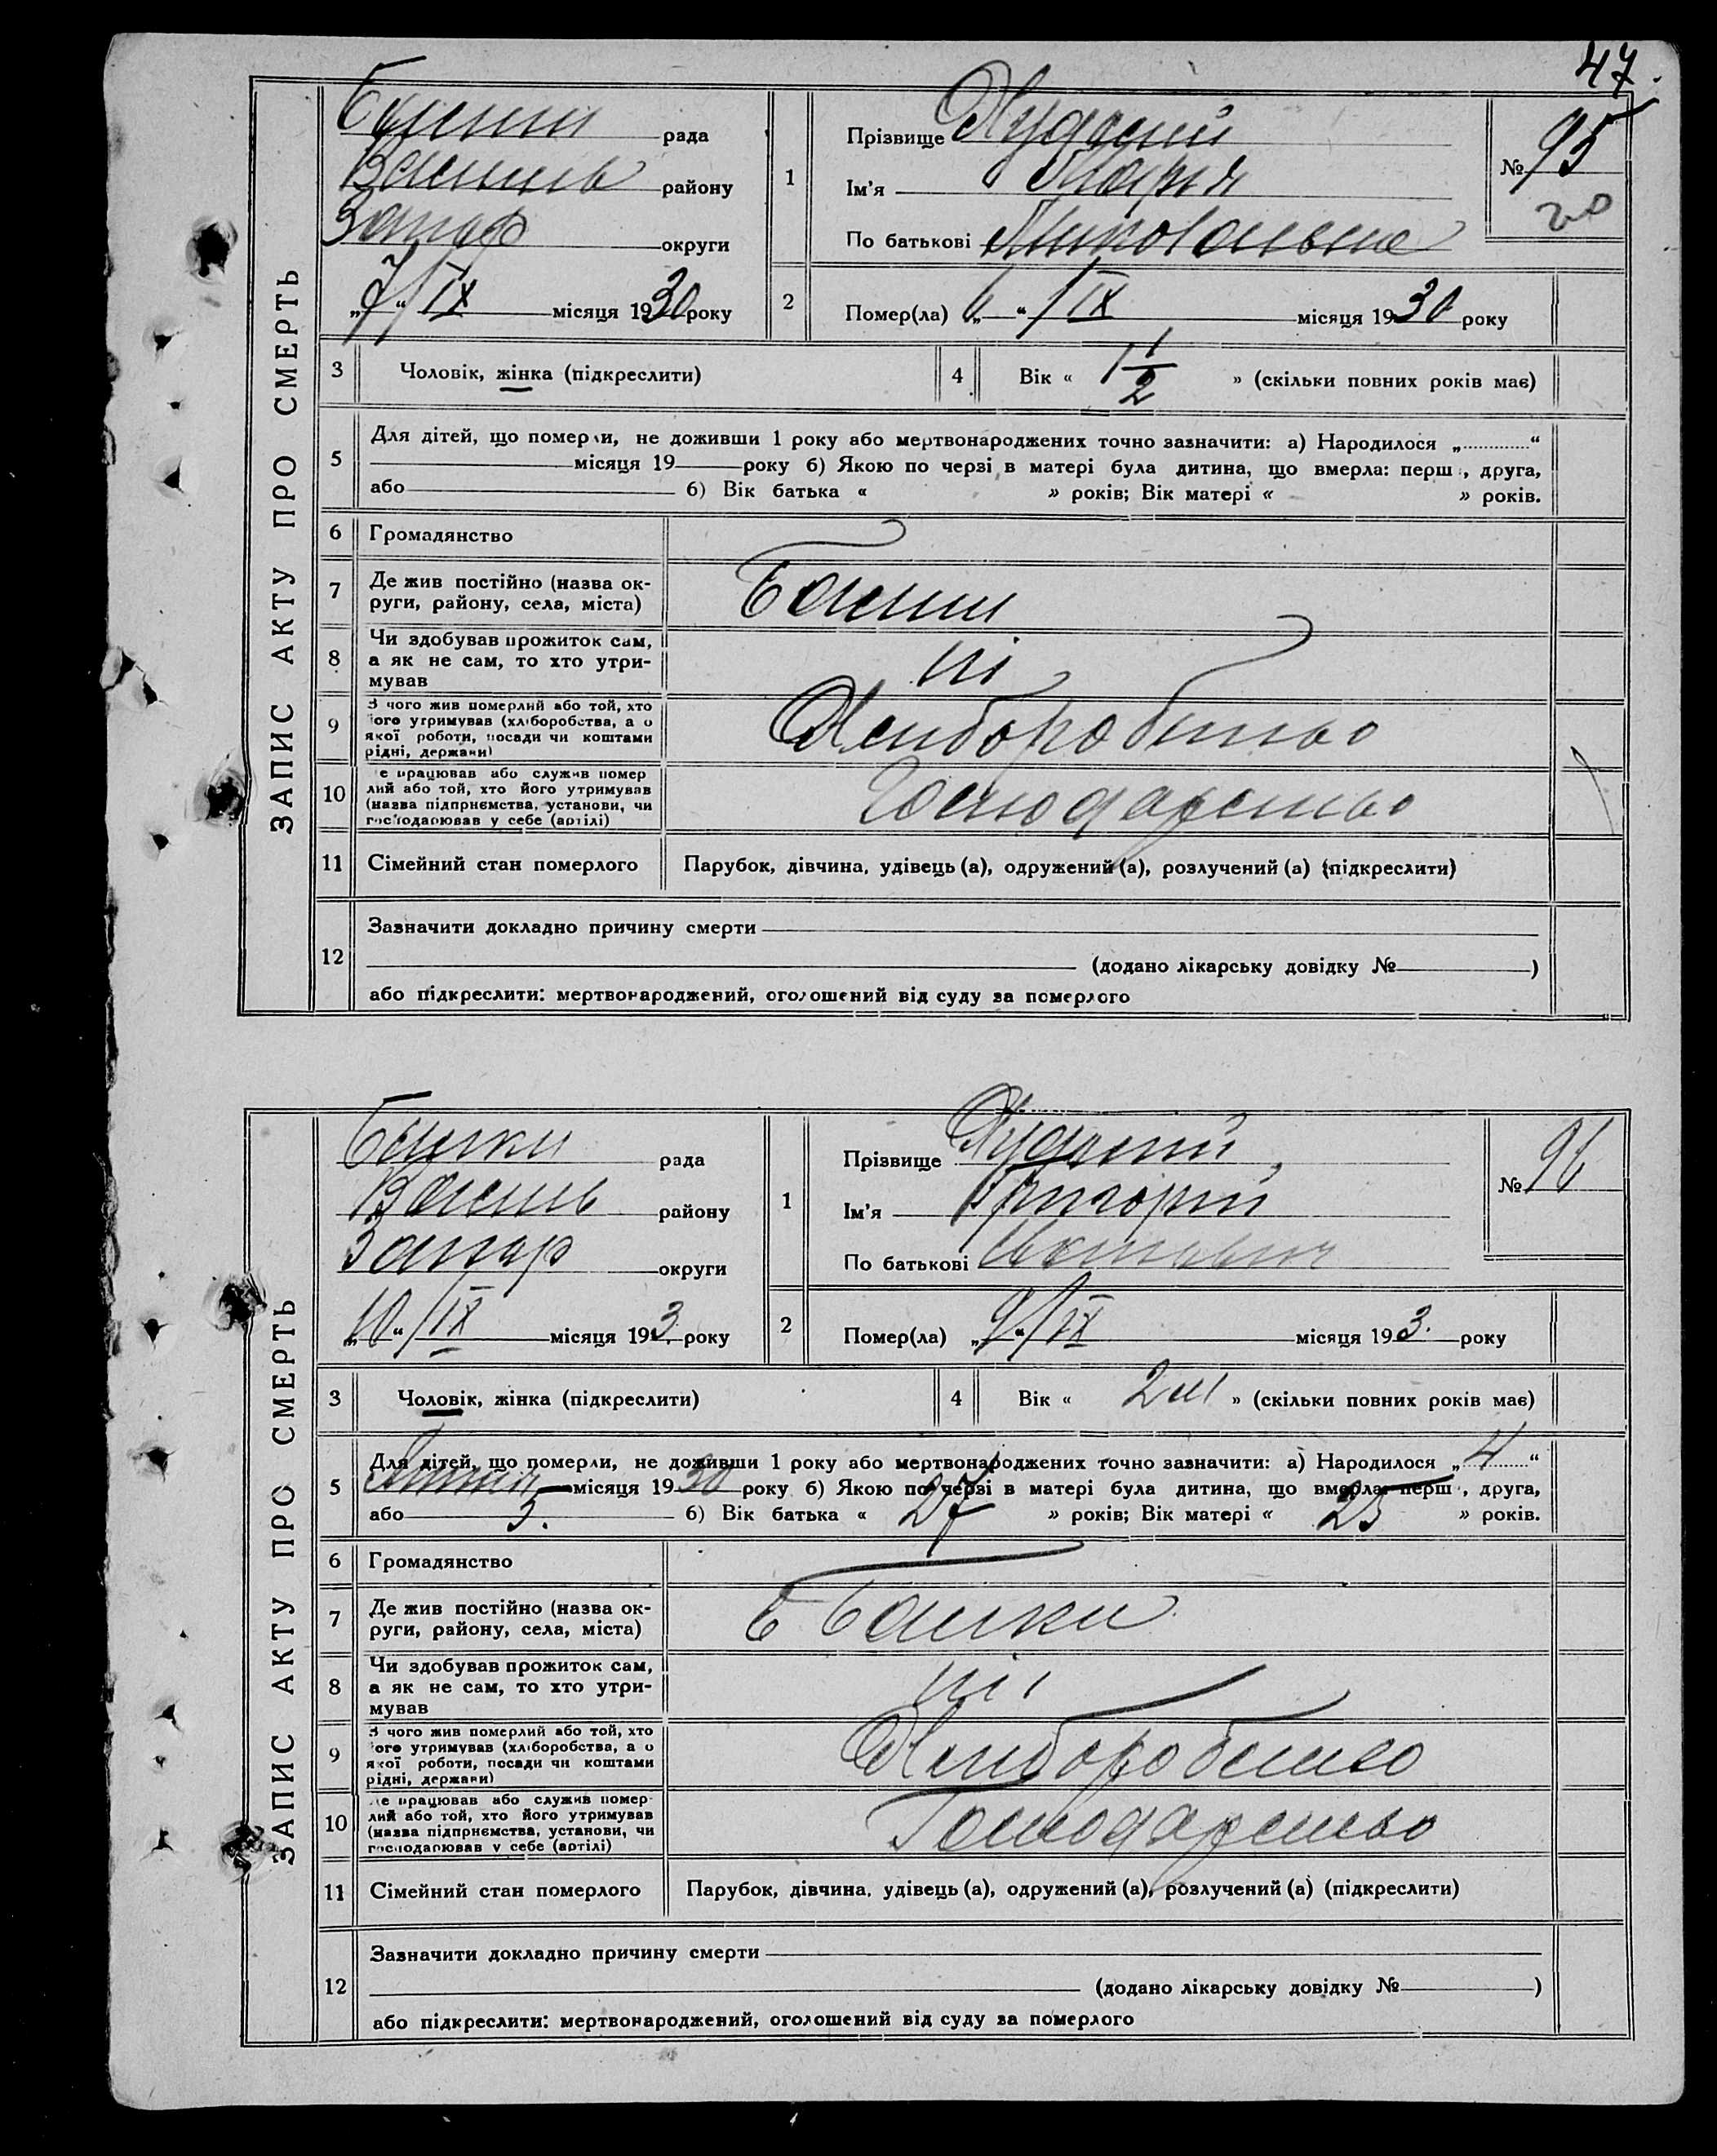 47.
ЗАПИС АКТУ ПРО СМЕРТЬ
рада
району
Запор округи
„7“/IX місяця 1930 року
1
Прізвище Худолій
Ім'я Марія
По батькові Миколаївна
№ 95
20
2 Помер(ла) „6“/IX місяця 1930 року
3 Чоловік, жінка (підкреслити)
4 Вік « 1 1/2 » (скільки повних років має)
5 Для дітей, що померли, не доживши 1 року або мертвонароджених точно зазначити: а) Народилося „ “
місяця 19 року б) Якою по черзі в матері була дитина, що вмерла: перш , друга,
або б) Вік батька « » років; Вік матері « » років.
6 Громадянство
7 Де жив постійно (назва ок-
руги, району, села, міста)
8 Чи здобував прожиток сам,
а як не сам, то хто утри-
мував
ні
9 З чого жив померлий або той, хто
ого утримував (хліборобства, а о
якої роботи, посади чи коштами
рідні, держави)
Хліборобство
10 е працював або служив помер
лий або той, хто його утримував
(назва підприємства, установи, чи
господарював у себе (артілі)
Господарство
11 Сімейний стан померлого Парубок, дівчина, удівець (а), одружений (а), розлучений (а) (підкреслити)
12 Зазначити докладно причину смерти
(додано лікарську довідку № )
або підкреслити: мертвонароджений, оголошений від суду за померлого
ЗАПИС АКТУ ПРО СМЕРТЬ
рада
району
Запор округи
„10“/IX місяця 193. року
1
Прізвище Худолій
Ім'я Григорій
По батькові
№ 96
2 Помер(ла) „9“/IX місяця 193. року
3 Чоловік, жінка (підкреслити)
4 Вік « 2 м » (скільки повних років має)
5 Для дітей, що померли, не доживши 1 року або мертвонароджених точно зазначити: а) Народилося „4“
місяця 1930 року б) Якою по черзі в матері була дитина, що вмерла: перш , друга,
або 3. б) Вік батька « 27 » років; Вік матері « 25 » років.
6 Громадянство
7 Де жив постійно (назва ок-
руги, району, села, міста)
8 Чи здобував прожиток сам,
а як не сам, то хто утри-
мував
ні
9 З чого жив померлий або той, хто
ого утримував (хліборобства, а о
якої роботи, посади чи коштами
рідні, держави)
Хліборобство
10 е працював або служив помер-
лий або той, хто його утримував
(назва підприємства, установи, чи
господарював у себе (артілі)
Господарство
11 Сімейний стан померлого Парубок, дівчина, удівець (а), одружений (а), розлучений (а) (підкреслити)
12 Зазначити докладно причину смерти
(додано лікарську довідку № )
або підкреслити: мертвонароджений, оголошений від суду за померлого